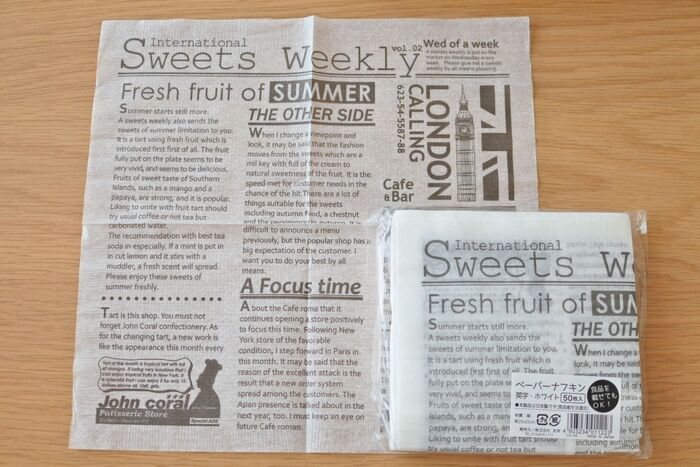 International
Sweets Weekly
vol.02
Wed of a week
A sweets weekly is put on the
market on Wednesday every
week. Please give me a sweets
weekly by all means pleasing.
Fresh fruit of SUMMER
Summer starts still more.
A sweets weekly also sends the
sweets of summer limitation to you.
It is a tart using fresh fruit which is
introduced first first of all. The fruit
fully put on the plate seems to be
very vivid, and seems to be delicious.
Fruits of sweet taste of Southern
Islands, such as a mango and a
papaya, are strong, and it is popular.
Liking to unite with fruit tart should
try usual coffee or not tea but
carbonated water.
The recommendation with best tea
soda in especially. If a mint is put in
in cut lemon and it stirs with a
muddler, a fresh scent will spread.
Please enjoy these sweets of
summer freshly.
Tart is this shop. You must not
forget John Coral confectionery. As
for the changing tart, a new work is
like the appearance this month every
Tart of this month is tropical tart with full
John coral
Patisserie Store
Special ADE
THE OTHER SIDE
When I change a viewpoint and
look, it may be said that the fashion
moves from the sweets which are a
mil key with full of the cream to
natural sweetness of the fruit. It is the
speed met for customer needs in the
chance of the hit.There are a lot of
things suitable for the sweets
including autumn food, a chestnut
and the persimmon in autumn. It is
difficult to announce a menu
previously, but the popular shop has a
big expectation of the customer. I
want you to do your best by all
means.
A Focus time
About the Cafe roma that it
continues opening a store positively
to focus this time. Following New
York store of the favorable
condition, I step forward in Paris in
this month. It may be said that the
reason of the excellent attack is the
result that a new order system
spread among the customers. The
Asian presence is talked about in the
next year, too. I must keep an eye on
future Cafe roman.
LONDON
CALLING
623-54-5587-88
Cafe
& Bar
International
Sweets We
Fresh fruit of SUM
Summer starts still more.
A sweets weekly also sends the
sweets of summer limitation to you.
It is a tart using fresh fruit which is
introduced first first of all. The fruit
fully put on the plate seems to be
very vivid, and seems to be
Fruits of sweet taste of
Islands, such as a mango
papaya, are strong, and
Liking to unite with fruit
try usual coffee or not
carbonated water.
THE OTH
When I change
look, it may be
ペーパーナフキン
英字・ホワイト 50枚入
食品を
載せても
OK!
4 903234 011223